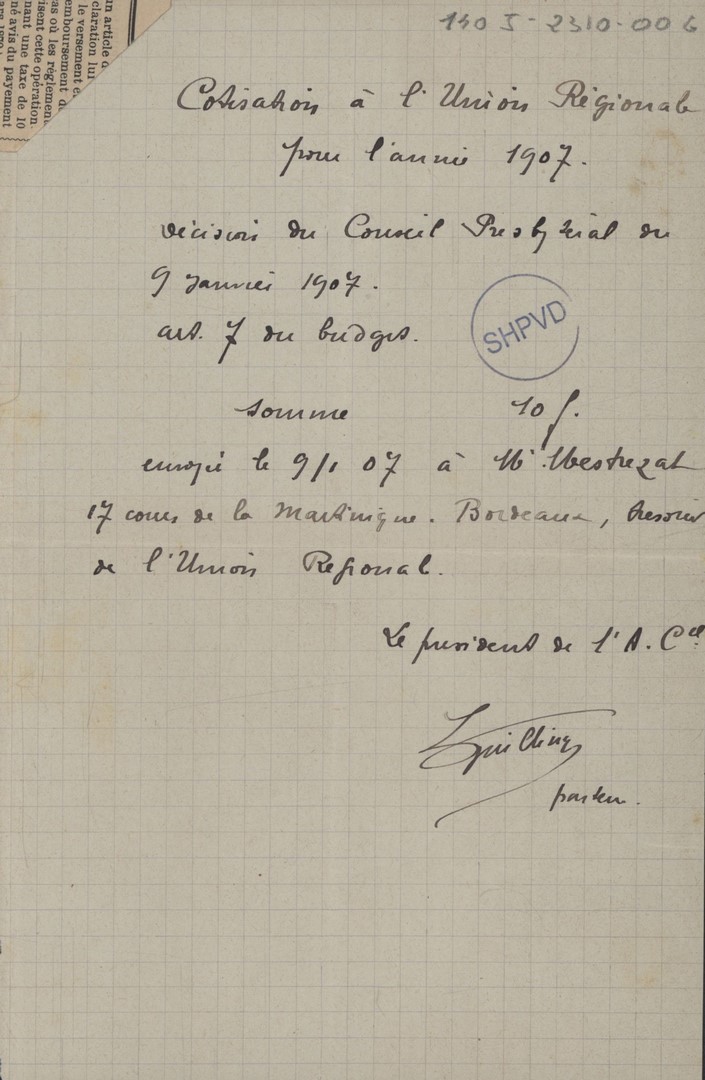 140 I - 2310-006
an article d
claration lui
le versement e
emboursement d
as où les règlement
risent cette opération.
nant une taxe de 10
né avis du payement
Cotisation à l'Union Régionale
pour l'année 1907.
Décision du Conseil Presbytéral du
9 Janvier 1907.
art. 7 du budget.
SHPVD
somme 10 f.
envoyé le 9/1 07 à Mr. Mestrezat
17 cours de la Martinique. Bordeaux, trésorier
de l'Union Regional.
Le president de l'A. Cel
pasteur.